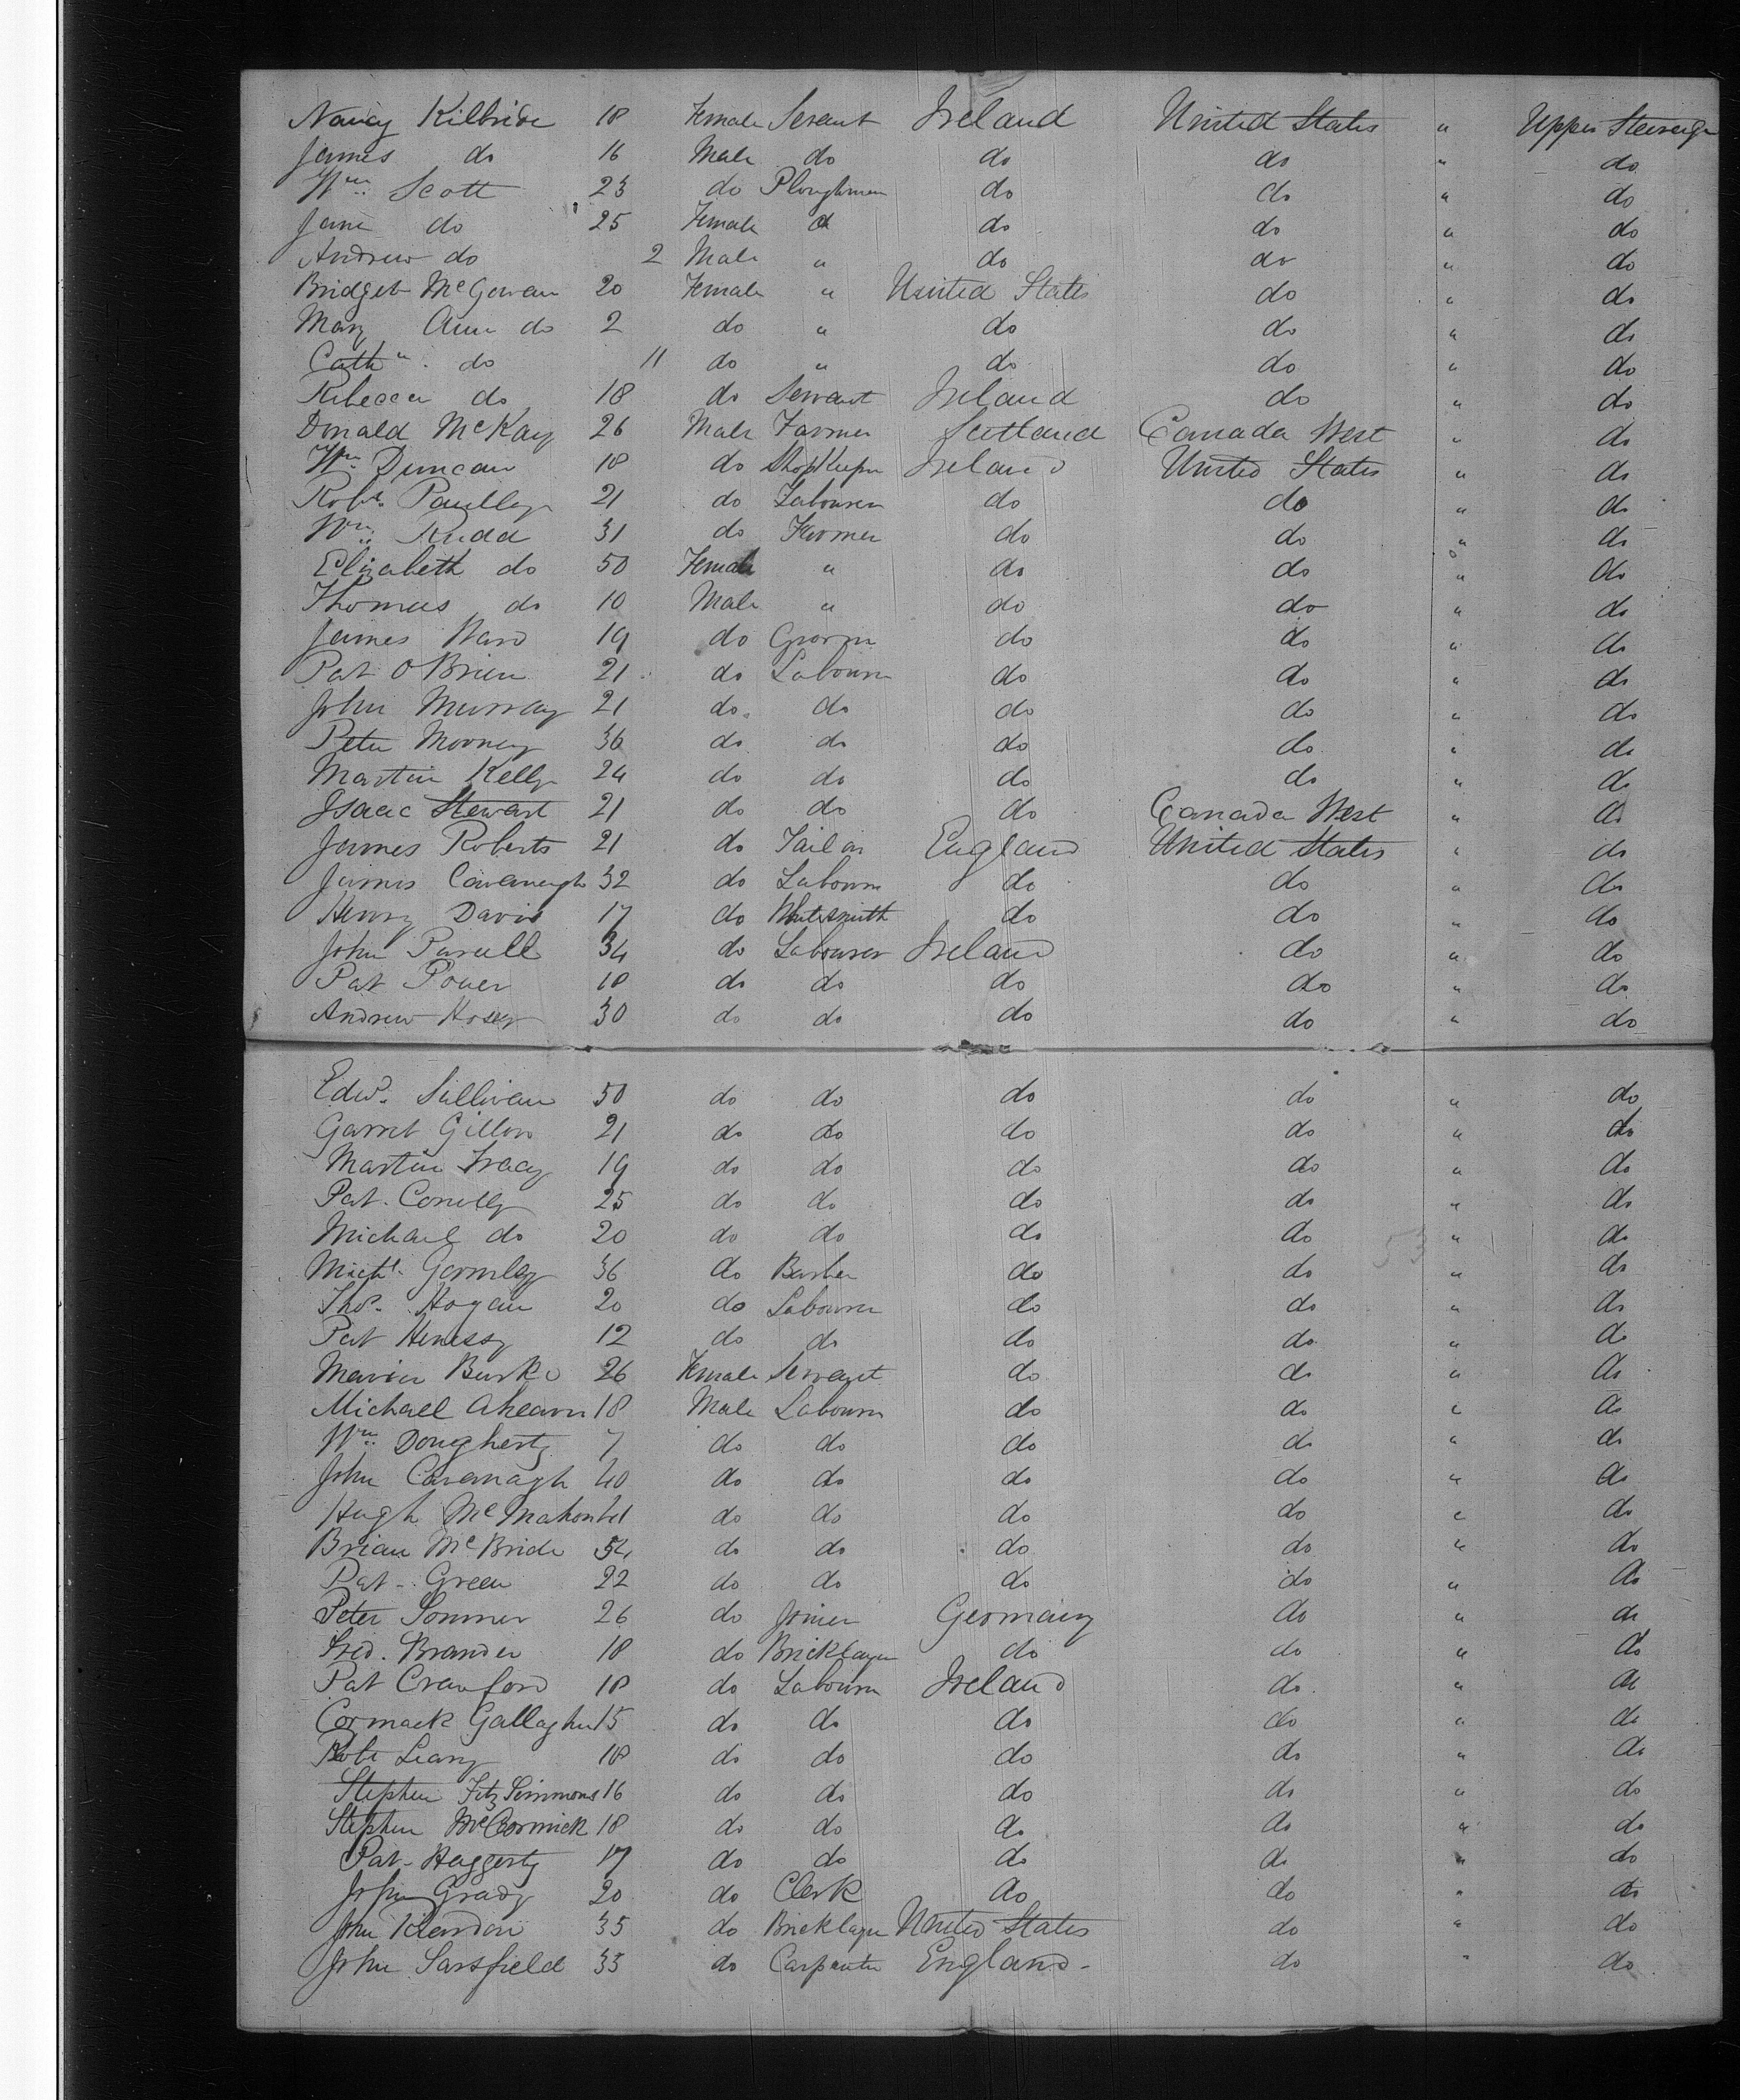 Nancy Kilbride 18 Female Servant Ireland United States " Upper Steerage
James do 16 Male do do do " do
Wm. Scott 23 do Ploughman do do " do
Jane do 25 Female do do " do
Andrew do 2 Male " do do " do
Bridget McGowan 20 Female " United States do " do
Mary Ann do 2 do " do do " do
Cathn. do 11 do " do do " do
Rebecca do 18 do Servant Ireland do " do
Donald McKay 26 Male Farmer Scotland Canada West " do
Wm. Duncan 18 do ShopKeeper Ireland United States " do
Robt. Paulley 21 do Labourer do do " do
Wm. Rudd 31 do Farmer do do " do
Elizabeth do 50 Female " do do " do
Thomas do 10 Male " do do " do
James Ward 19 do do do " do
Pat O'Brien 21 do Labourer do do " do
John Murray 21 do do do do " do
Peter Mooney 36 do do do do " do
Martin Kelly 24 do do do do " do
Isaac Stewart 21 do do do Canada West " do
James Roberts 21 do Tailor England United States " do
James Cavanagh 32 do Labourer do do " do
Henry Davis 17 do Whitesmith do do " do
John Purcell 34 do Labourer Ireland do " do
Pat Power 18 do do do do " do
Andrew 30 do do do do " do
Edwd. Sullivan 50 do do do do " do
Garret Gillon 21 do do do do " do
Martin Tracy 19 do do do do " do
Pat. Conelly 25 do do do do " do
Michael do 20 do do do do " do
Michl. Gormley 36 do Barber do do " do
Thos. Hogan 20 do Labourer do do " do
Pat Henessy 12 do do do do " do
Maria Burke 26 Female Servant do do " do
Michael Ahearn 18 Male Labourer do do " do
Wm. Dougherty 7 do do do do " do
John Cavanagh 40 do do do do " do
Hugh McMahon 41 do do do do " do
Brian McBride 54 do do do do " do
Pat. Green 22 do do do do " do
Peter Sommer 26 do Joiner Germany do " do
Fred. Brander 18 do Bricklayer do do " do
Pat Crawford 18 do Labourer Ireland do " do
Cormack Gallagher 15 do do do do " do
Robt Leary 18 do do do do " do
Stephen FitzSimmons 16 do do do do " do
Stephen McCormick 18 do do do do " do
Pat. Haggerty 17 do do do do " do
John Grady 20 do Clerk do do " do
John Reardon 35 do Bricklayer United States do " do
John Sarsfield 33 do Carpenter England do " do